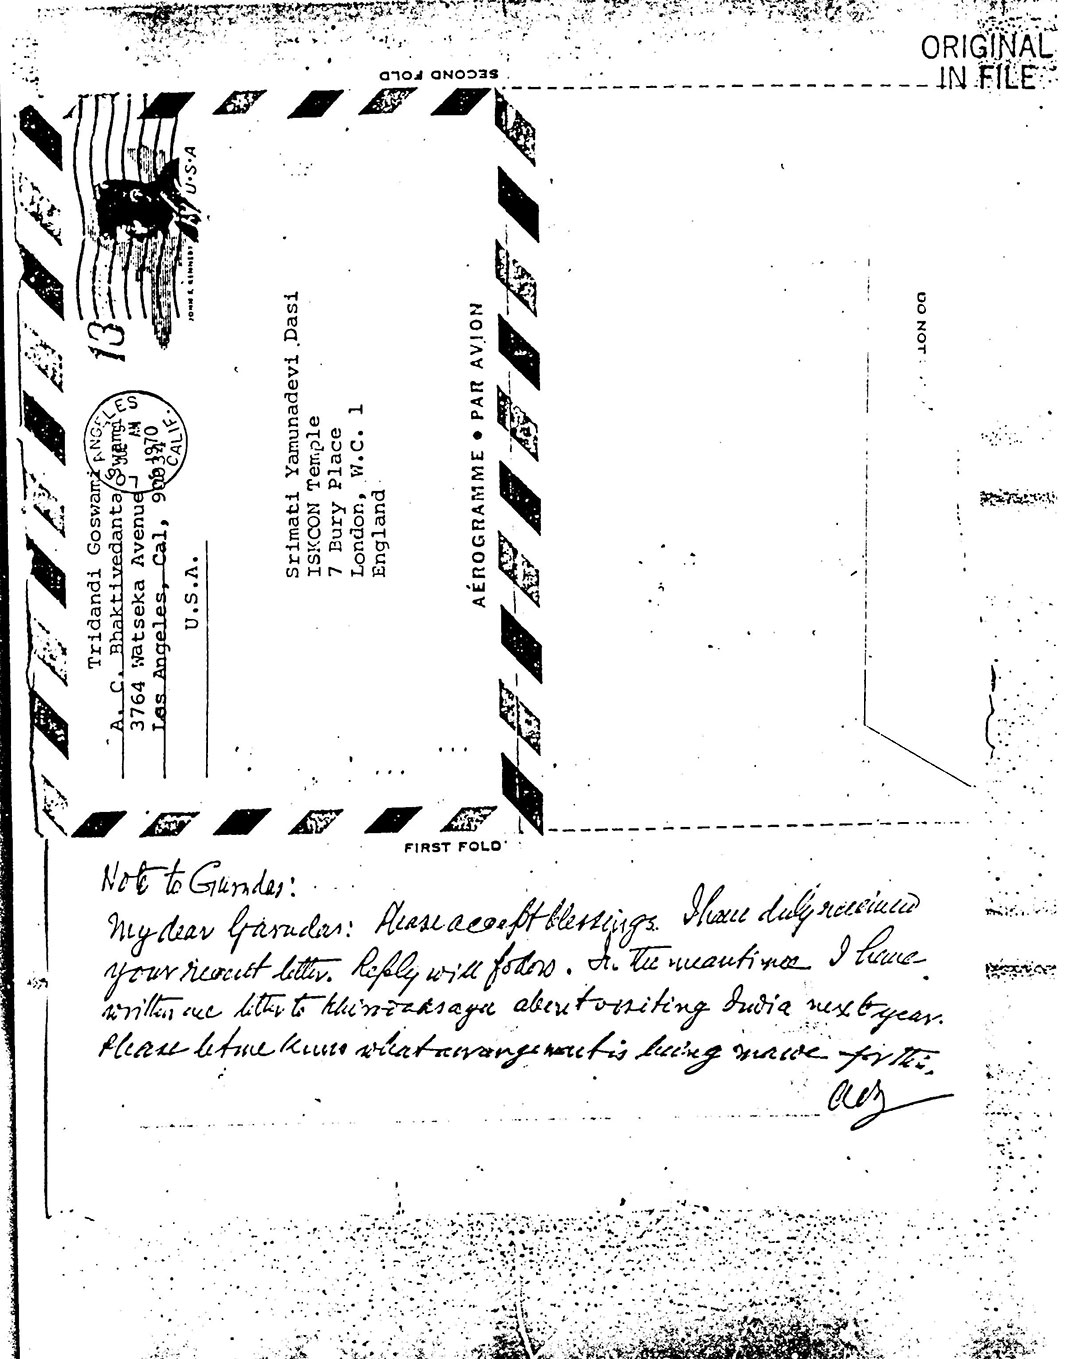 ORIGINAL
IN FILE
SECOND FOLD
U·S·A
JOHN F. KENNEDY
13
LOS ANGELES
AM
1970
CALIF.
Tridandi Goswami
A. C. Bhaktivedanta Swami
3764 Watseka Avenue
Los Angeles, Cal, 90034
U.S.A.
Srimati Yamunadevi Dasi
ISKCON Temple
7 Bury Place
London, W.C. 1
England
AÉROGRAMME • PAR AVION
DO NOT
FIRST FOLD
Note to Gurudas:
My dear Gurudas: Please accept blessings. I have duly received
your recent letter. Reply will follow. In the meantime I have
written one letter to Khirodaksaya about visiting India next year.
Please let me know what arrangement is being made for this.
ACB